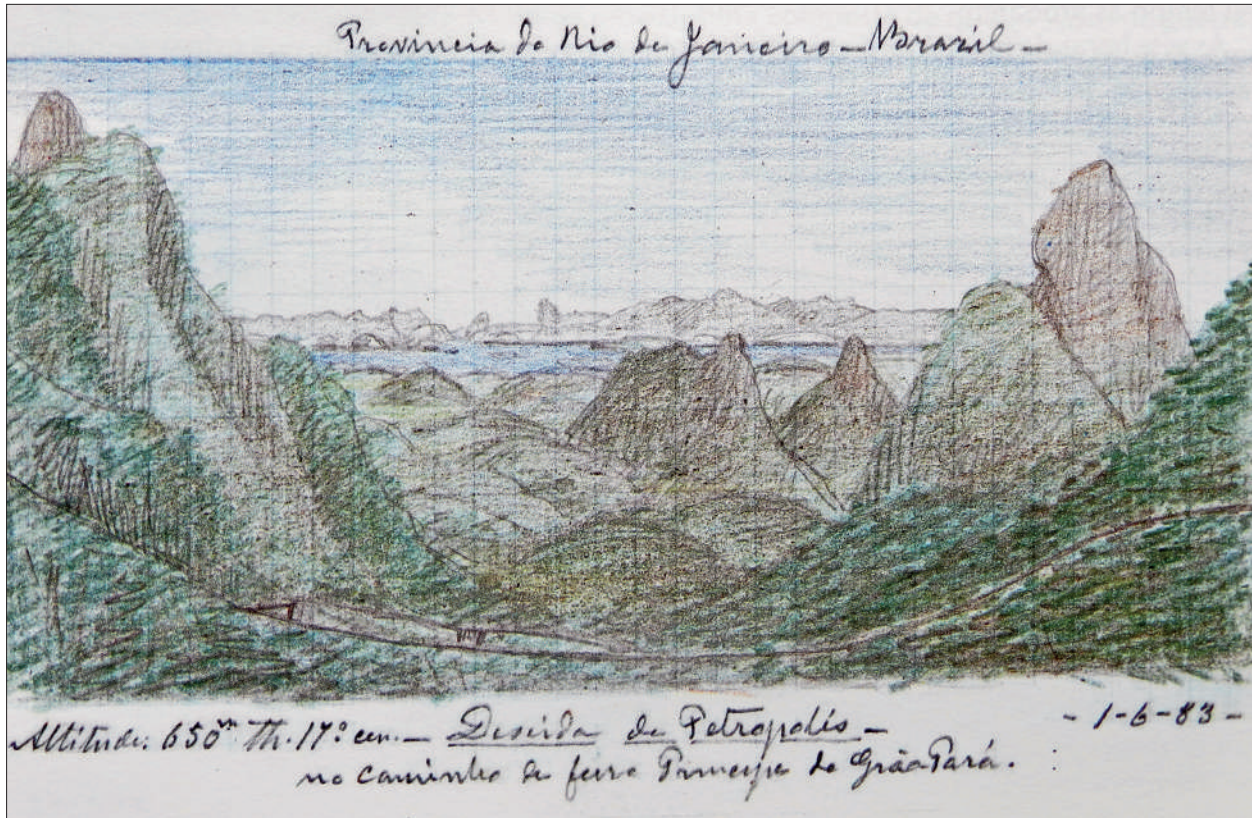 Provincia do Rio de Janeiro - Brazil -
Altitude: 650m Th. 17° cen. - Descida de Petropolis - - 1-6-83 -
no caminho de ferro Principe do Grão Pará.